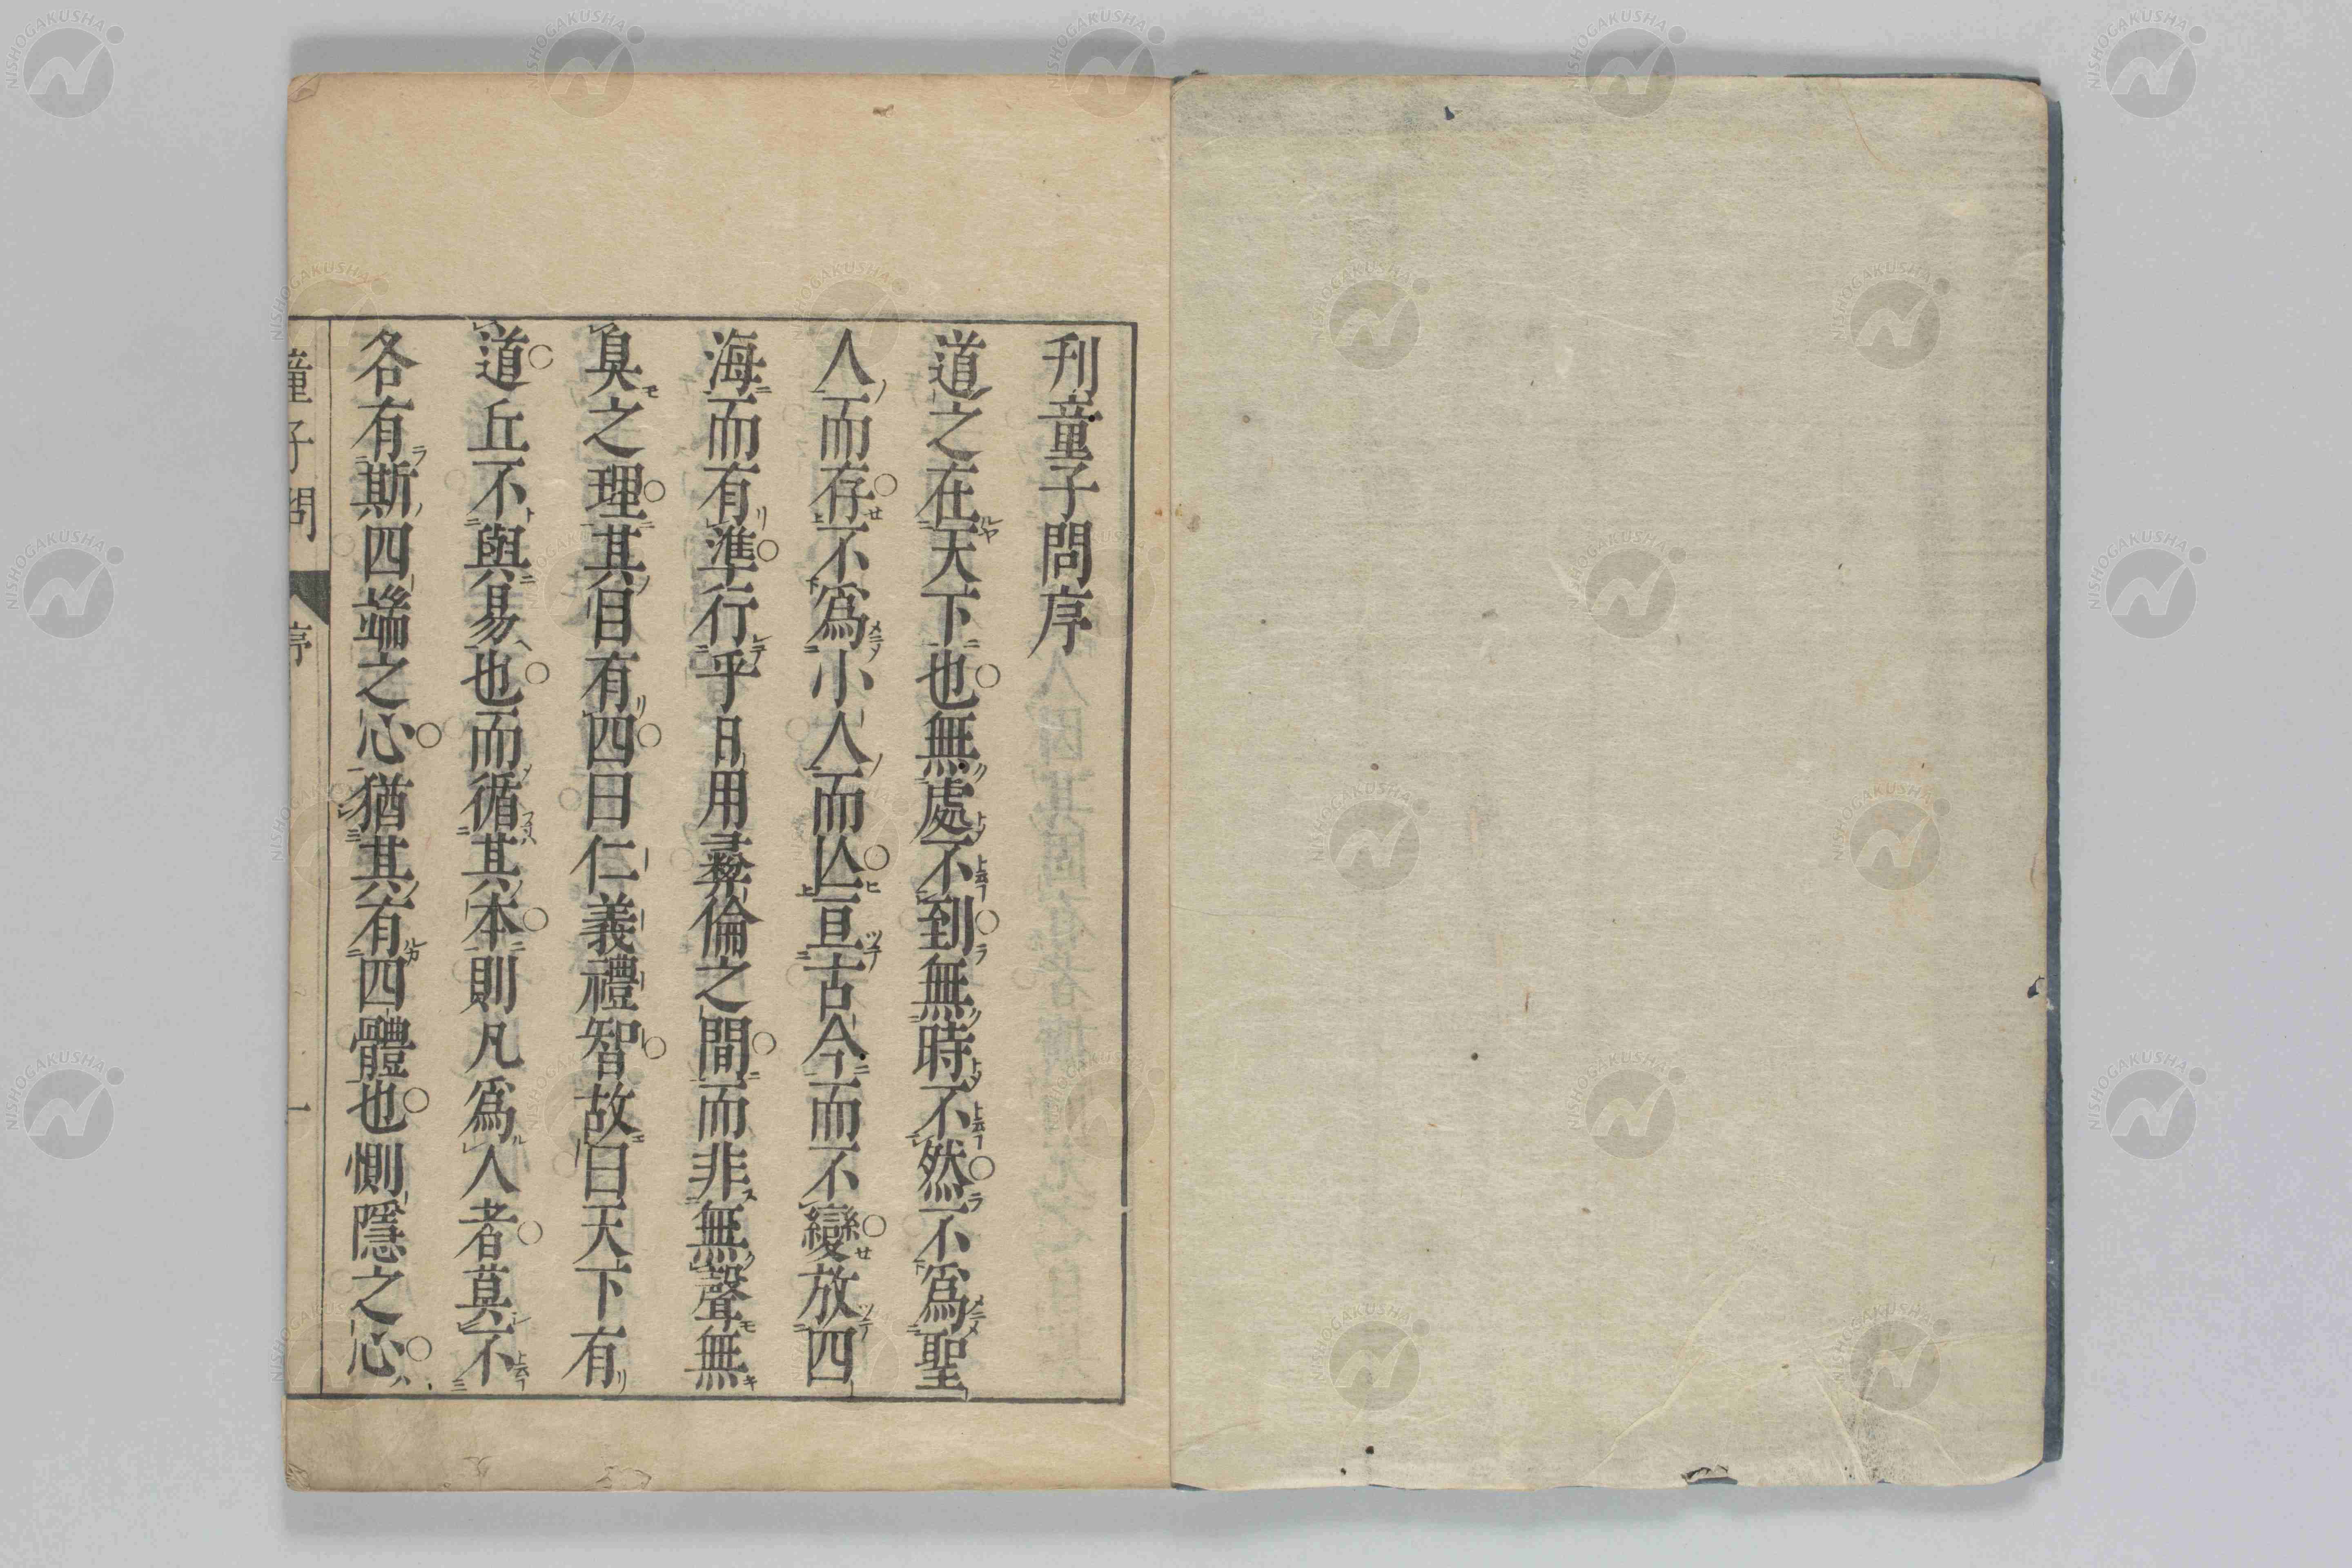 刊童子問序
道之在天下也無處不到無時不然不爲聖
人而存不爲小人而亾亘古今而不變放四
海而有準行乎日用彝倫之間而非無聲無
臭之理其目有四曰仁義禮智故曰天下有
道丘不與易也而循其本則凡爲人者莫不
各有斯四端之心猶其有四體也惻隱之心
童子問 序 一